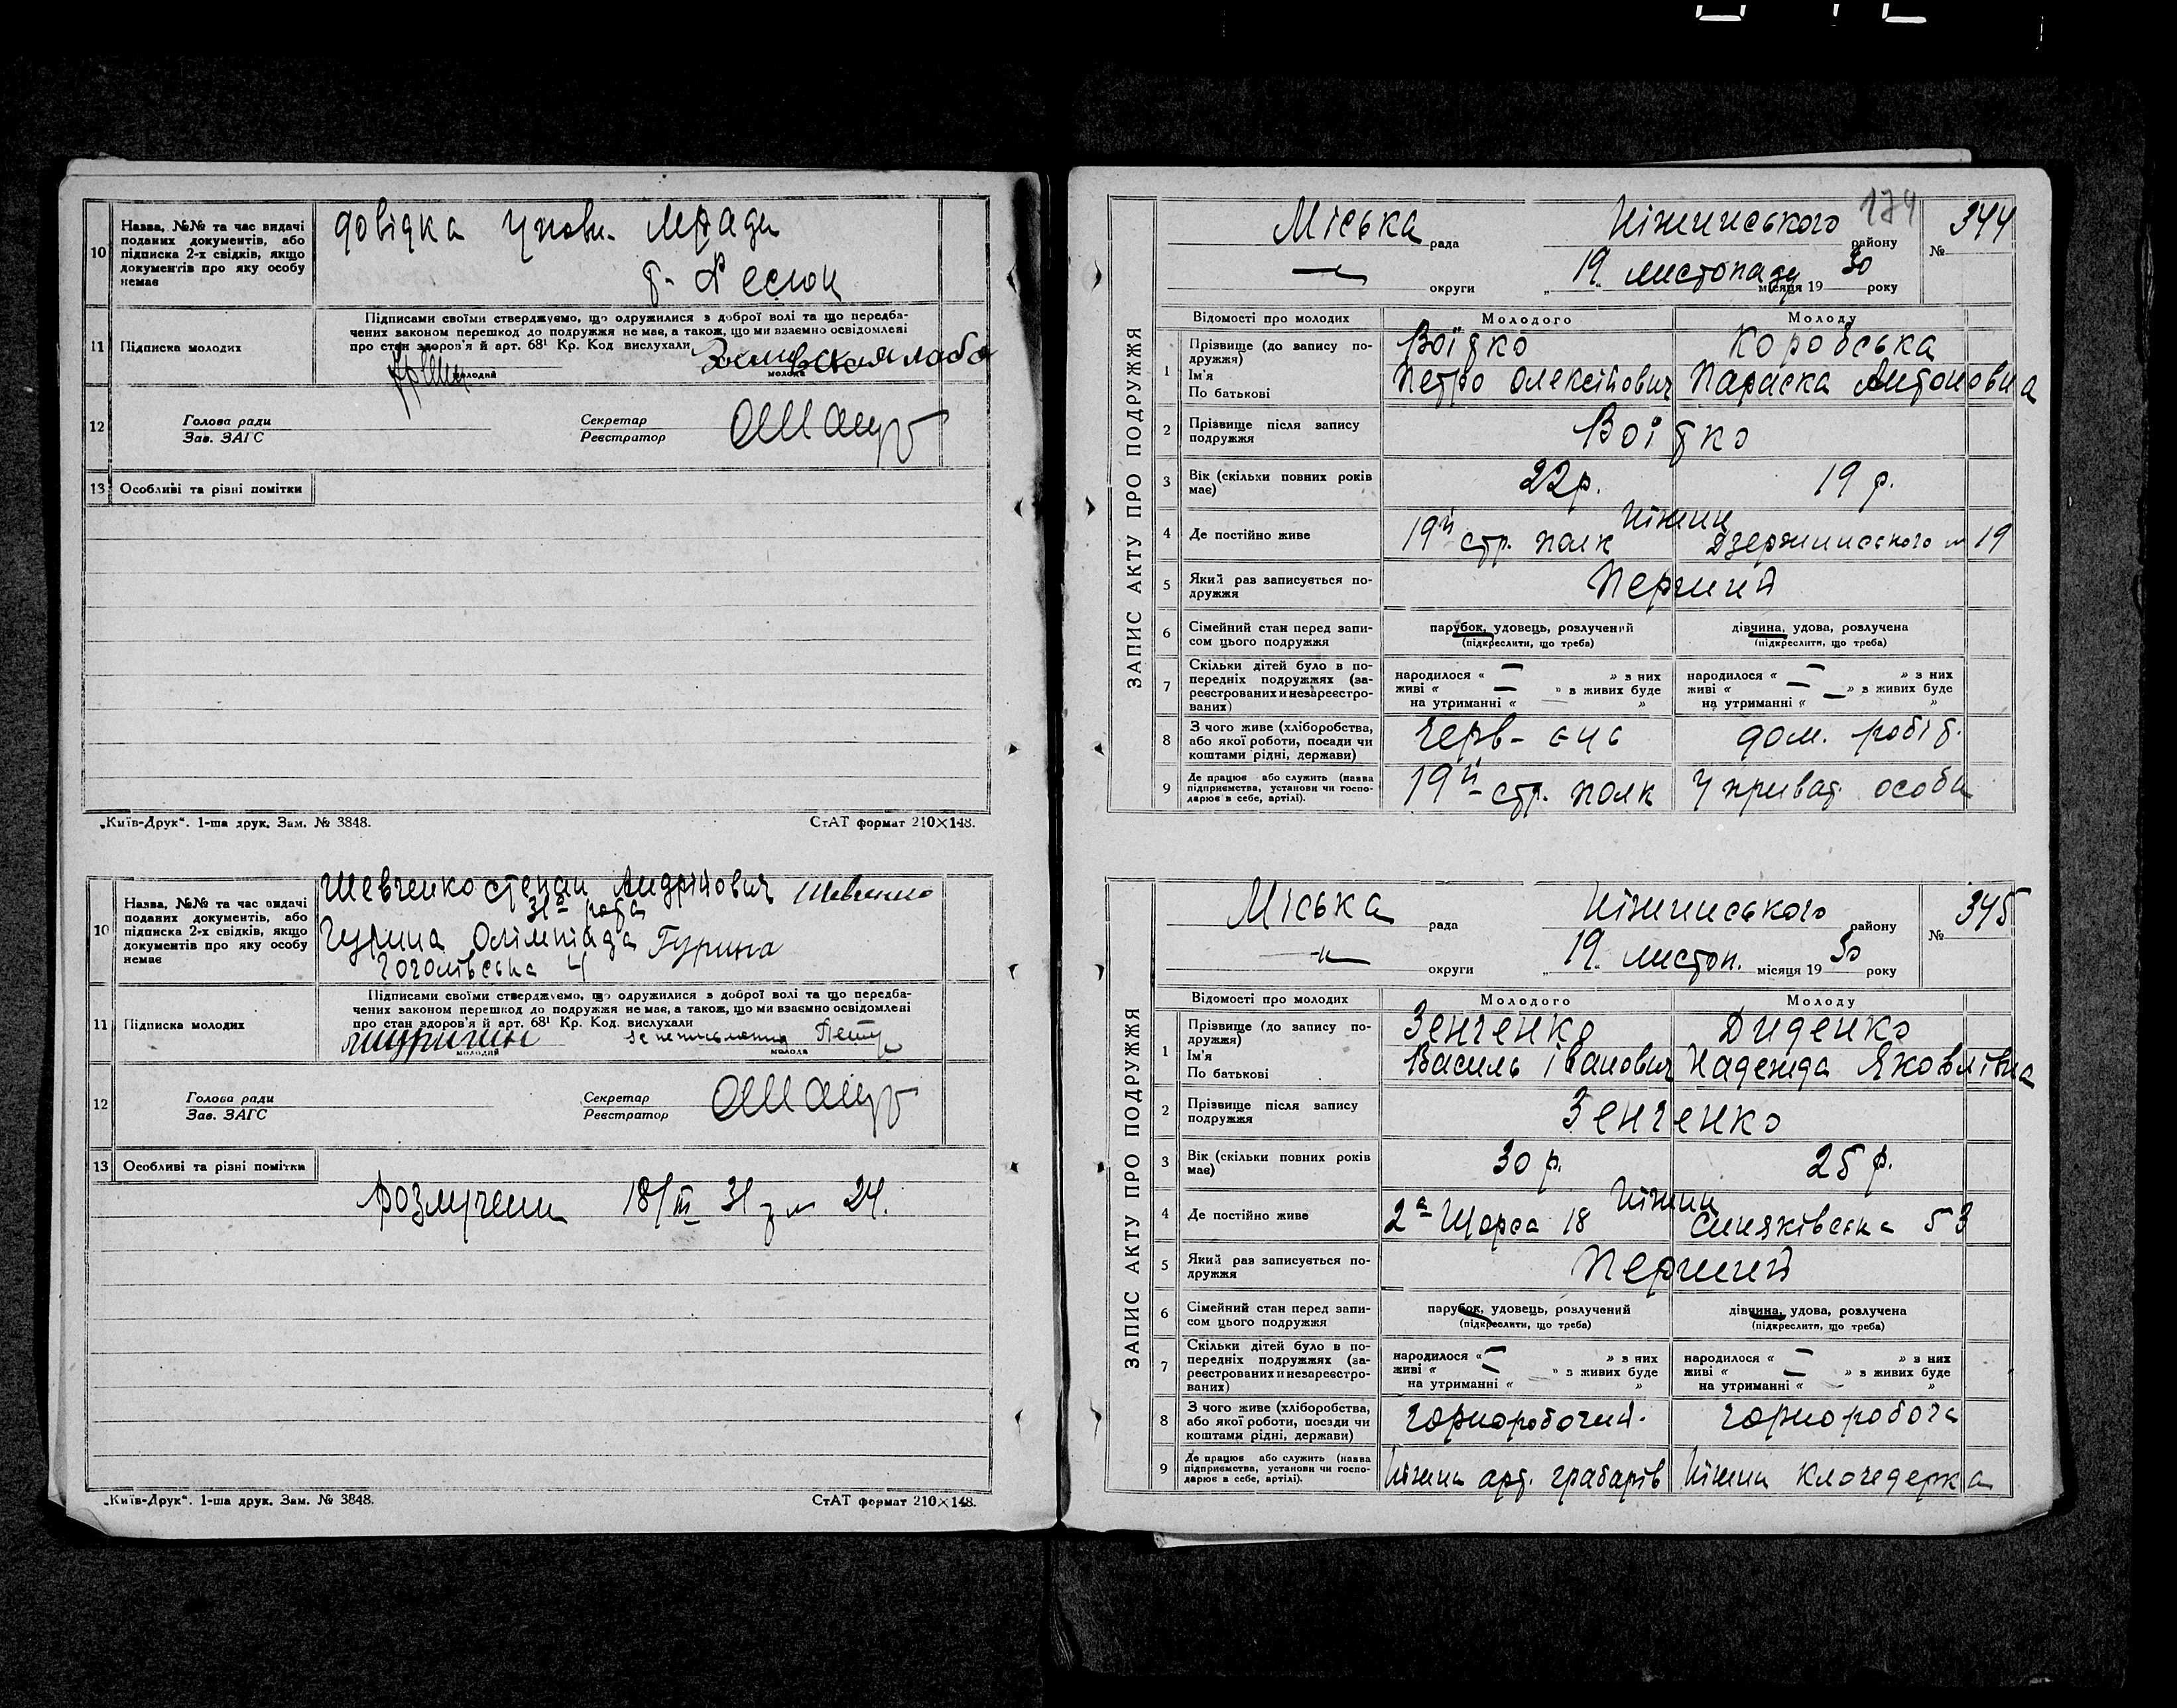 10
Назва, №№ та час видачі
поданих документів, або
підписка 2-х свідків, якщо
документів про яку особу
немає
довідка
11
Підписка молодих
Підписами своїми стверджуємо, що одружилися з доброї волі та що передба-
чених законом перешкод до подружжя не має, а також, що ми взаємно освідомлені
про стан здоров'я й арт. 68¹ Кр. Код вислухали
молодий
молода
12
Голова ради
Зав. ЗАГС
Секретар
Реєстратор
13
Особливі та різні помітки
„Київ-Друк“. 1-ша друк. Зам. № 3848.
СтАТ формат 210×148.
10
Назва, №№ та час видачі
поданих документів, або
підписка 2-х свідків, якщо
документів про яку особу
немає
Шевченко Степан Андрійович
31а рота
Гурина Олімпіада Гурина
Гоголівська 4
11
Підписка молодих
Підписами своїми стверджуємо, що одружилися з доброї волі та що передба-
чених законом перешкод до подружжя не має, а також, що ми взаємно освідомлені
про стан здоров'я й арт. 68¹ Кр. Код. вислухали
молодий
молода
12
Голова ради
Зав. ЗАГС
Секретар
Реєстратор
13
Особливі та різні помітки
Розлучени 18/III 31 24.
„Київ-Друк“. 1-ша друк. Зам. № 3848.
СтАТ формат 210×148.
174
ЗАПИС АКТУ ПРО ПОДРУЖЖЯ
Міська рада Ніжинського району № 344
— округи „19„ листопаду місяця 1930 року
Відомості про молодих
Молодого
Молоду
1
Прізвище (до запису по-
дружжя)
Ім'я
По батькові
Войтко
Петро Олексійович
Коробська
Параска Антоновна
2
Прізвище після запису
подружжя
Войтко
3
Вік (скільки повних років
має)
22 р.
19 р.
4
Де постійно живе
Ніжин
19й стр. полк
Дзержинського 19
5
Який раз записується по-
дружжя
Перший
6
Сімейний стан перед запи-
сом цього подружжя
парубок, удовець, розлучений
(підкреслити, що треба)
дівчина, удова, розлучена
(підкреслити, що треба)
7
Скільки дітей було в по-
передніх подружжях (за-
реєстрованих и незареєстро-
ваних)
народилося « — » з них
живі « — » з живих буде
на утриманні « »
народилося « — » з них
живі « — » з живих буде
на утриманні « — »
8
З чого живе (хліборобства,
або якої роботи, посади чи
коштами рідні, держави)
дом. робіт.
9
Де працює або служить (назва
підприємства, установи чи госпо-
дарює в себе, артілі).
19й стр. полк
У приват. особи
ЗАПИС АКТУ ПРО ПОДРУЖЖЯ
Міська рада Ніжинського району № 345
— округи „19„ листоп. місяця 1930 року
Відомості про молодих
Молодого
Молоду
1
Прізвище (до запису по-
дружжя)
Ім'я
По батькові
Зенченко
Василь Іванович
Диденко
Надежда Яковлівна
2
Прізвище після запису
подружжя
Зенченко
3
Вік (скільки повних років
має)
30 р.
25 р.
4
Де постійно живе
Ніжин
2а Щорса 18
Синяківська 53
5
Який раз записується по-
дружжя
Перший
6
Сімейний стан перед запи-
сом цього подружжя
парубок, удовець, розлучений
(підкреслити, що треба)
дівчина, удова, розлучена
(підкреслити, що треба)
7
Скільки дітей було в по-
передніх подружжях (за-
реєстрованих и незареєстро-
ваних)
народилося « — » з них
живі « — » з живих буде
на утриманні « »
народилося « — » з них
живі « — » з живих буде
на утриманні « — »
8
З чого живе (хліборобства,
або якої роботи, посади чи
коштами рідні, держави)
чорноробочий.
чорноробоча
9
Де працює або служить (назва
підприємства, установи чи госпо-
дарює в себе, артілі).
Ніжин арт. грабарів
Ніжин